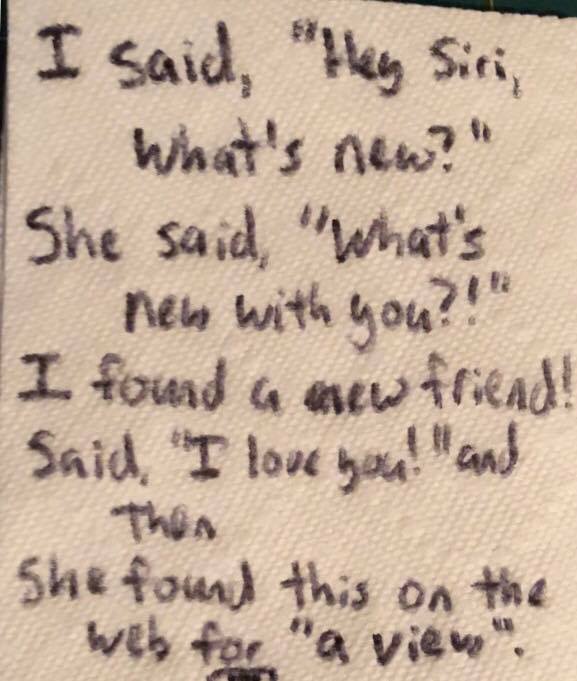 I said, "Hey Siri,
What's new?"
She said, "What's
new with you?!"
I found a new friend!
Said, "I love you!" and
Then
She found this on the
web for "a view".